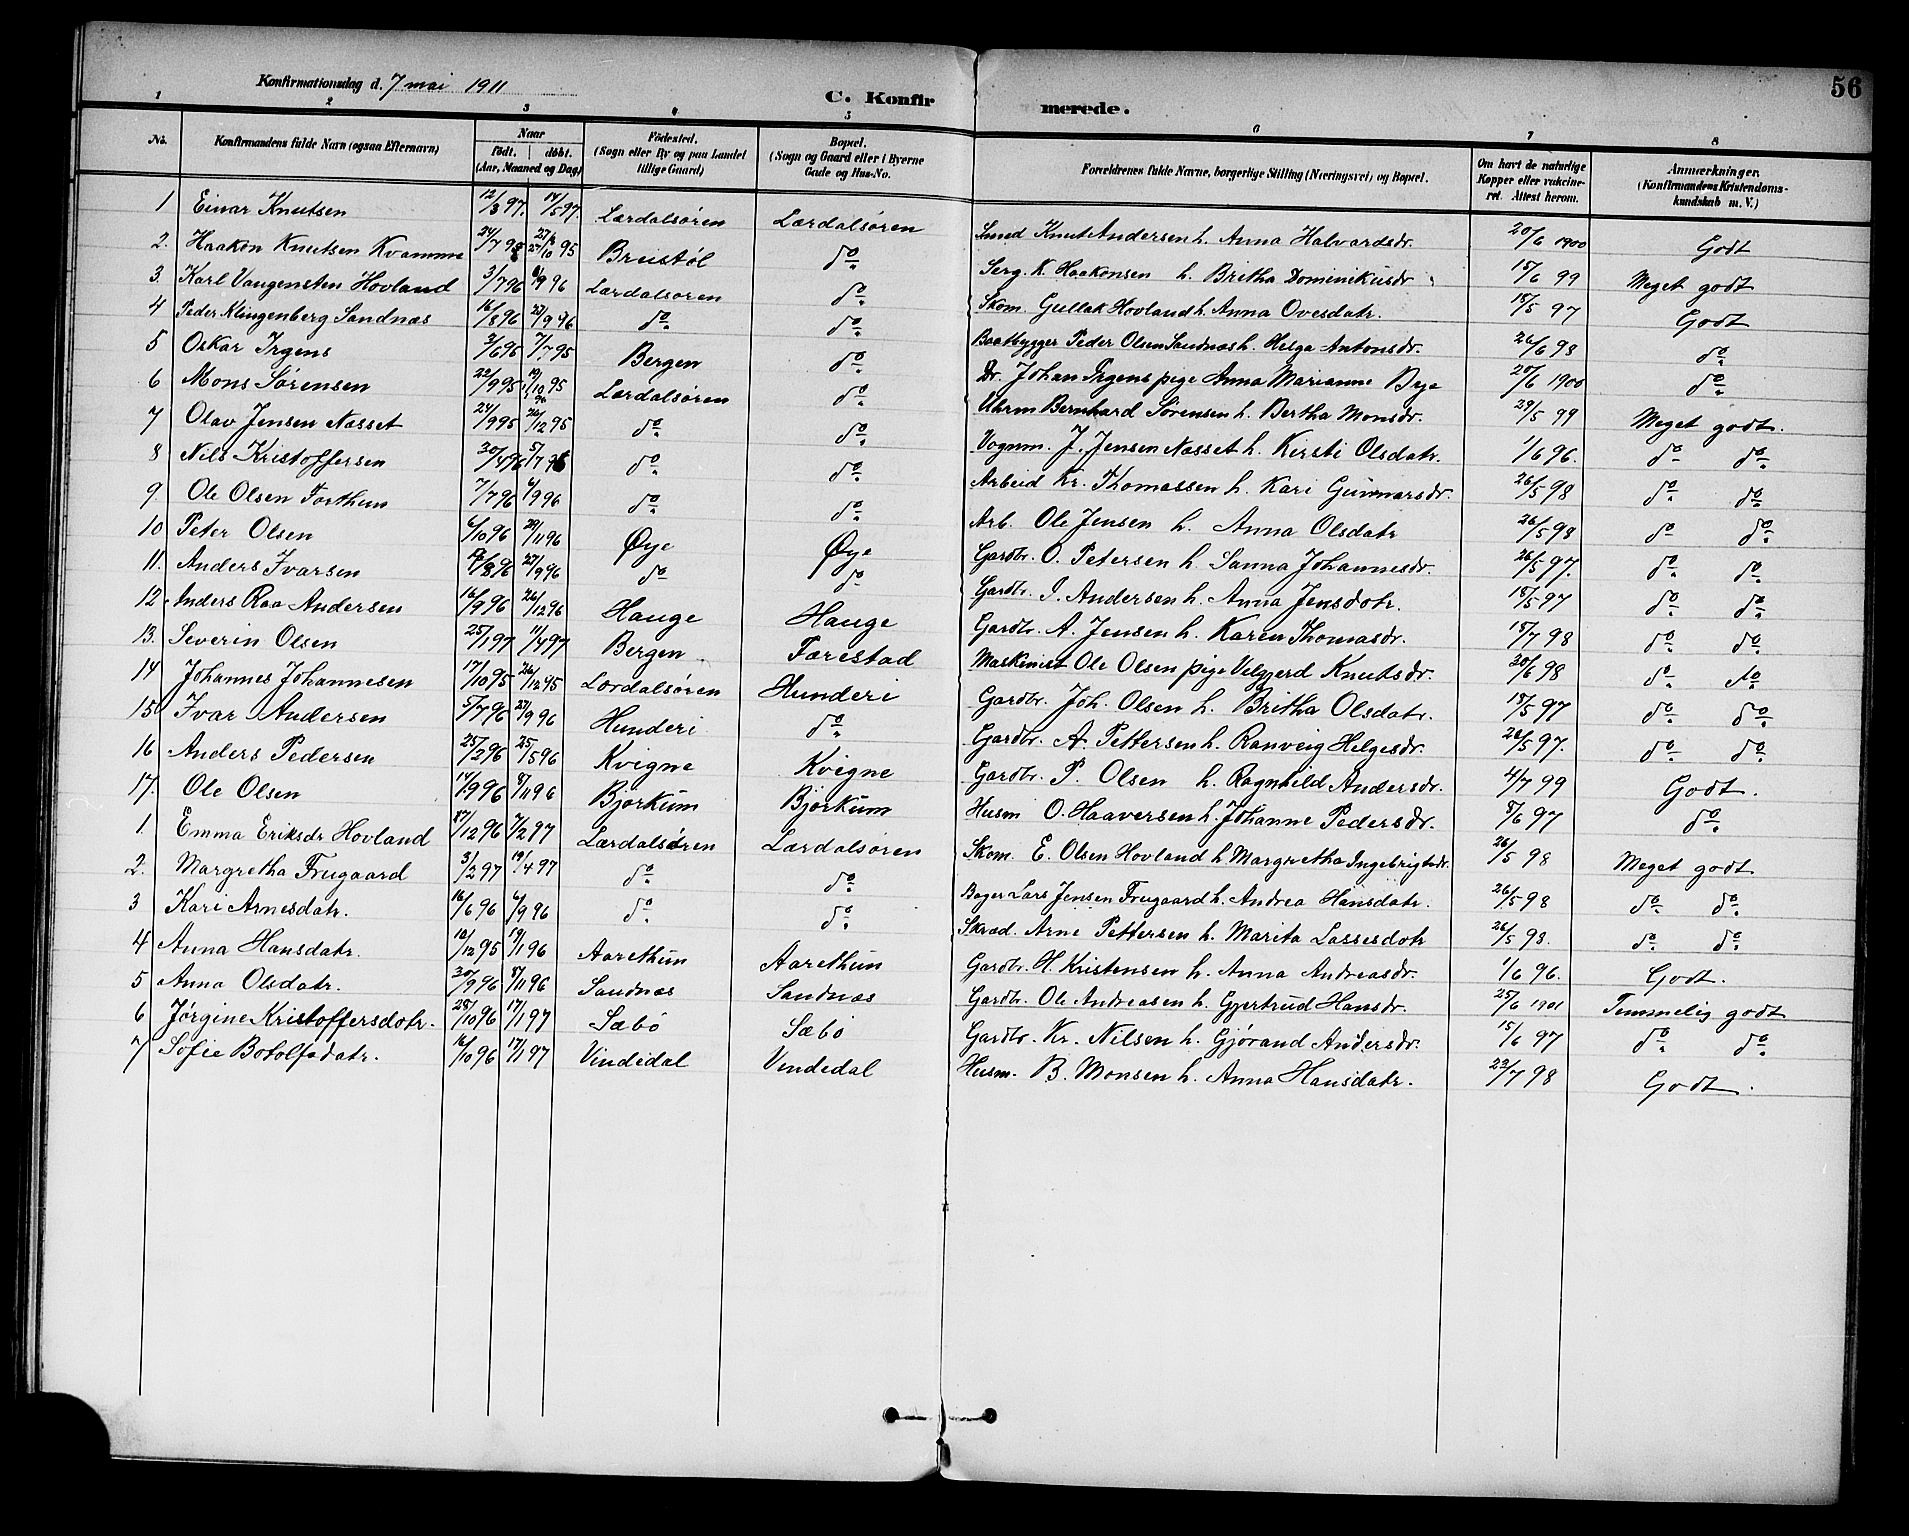 56
Konfirmationsdag d. 7 mai 1911
C. Konfirmerede.
1 2 3 4 5 6 7 8
No. | Konfirmandens fulde Navn (ogsaa Efternavn) | Naar födt. | döbt. (Aar, Maaned og Dag) | Födested. (Sogn eller By og paa Landet tillige Gaard) | Bopæl. (Sogn og Gaard eller i Byerne Gade og Hus-No. | Forældrenes fulde Navne, borgerlige Stilling (Næringsvei) og Bopæl. | Om havt de naturlige Kopper eller vakcineret. Attest herom. | Anmærkninger. (Konfirmandens Kristendomskundskab m. V.)
1 Einar Knutsen 12/3 97. 14/5 97. Lærdalsören Lærdalsören Smed Knut Andersen h. Anna Halvardsdr. 20/6 1900 Godt
2. Haakon Knutsen Kvamme 24/7 95 27/10 95 Breistöl do Serg. K. Haakonsen h. Britha Dominikusdr. 15/6 99 Meget godt
3. Karl Vangensten Hovland 3/7 96 6/9 96 Lærdalsören do Skom. Gullak Hovland h. Anna Ovesdatr. 18/5 97 Godt
4 Peder Klingenberg Sandnæs 16/8 96 27/9 96 do do Baatbygger Peder Olsen Sandnæs h. Helga Antonsdr. 26/6 98 do
5 Oskar Irgens 3/6 95 7/7 95 Bergen do Dr. Johan Irgens pige Anna Marianne Bye 20/6 1900 do
6 Mons Sørensen 22/9 95 19/10 95 Lærdalsören do Uhrm Bernhard Sørensen h. Bertha Monsdr. 29/5 99 Meget godt.
7 Olav Jensen Næsset 24/9 95 26/12 95 do do Vognm. J. Jensen Næsset h. Kirsti Olsdatr. 1/6 96. do do
8 Nils Kristoffersen 30/4 96 5/7 96 do do Arbeid Kr. Thomassen h. Kari Gunnarsdr. 26/5 98 do do
9. Ole Olsen Forthun 7/7 96 6/9 96 do do Arb. Ole Jensen h. Anna Olsdatr 26/5 98 do do
10 Peter Olsen 6/10 96 29/11 96 Øye Øye Gardbr. O. Petersen h. Sanna Johannesdr. 26/5 97. do do
11. Anders Ivarsen 19/8 96 27/9 96 do do Gardbr. I. Andersen h. Anna Jensdatr. 18/5 97 do do
12 Anders Raa Andersen 16/9 96 26/12 96 Hauge Hauge Gardbr. A. Jensen h. Karen Thomasdr. 15/7 98 do do
13. Severin Olsen 25/1 97 11/4 97 Bergen Færestad Maskinist Ole Olsen pige Velgjerd Knutsdr. 20/6 98 do do
14 Johannes Johannesen 17/10 95 26/12 95 Lærdalsören Hunderi Gardbr. Joh. Olsen h. Britha Olsdatr. 18/5 97 do do
15 Ivar Andersen 5/7 96 27/9 96 Hunderi do Gardbr. A. Pettersen h. Ranveig Helgesdr. 26/5 97. do do
16 Anders Pedersen 25/2 96 25/5 96 Kvigne Kvigne Gardbr. P. Olsen h. Ragnhild Andersdr. 4/7 99 Godt.
17. Ole Olsen 14/9 96 8/11 96 Björkum Björkum Husm O. Haaversen h. Johanne Pedersdr. 8/6 97 do
1. Emma Eriksdr Hovland 27/12 96 7/2 97 Lærdalsören Lærdalsören Skom. E. Olsen Hovland h Margretha Ingebrigtsdr. 26/5 98 Meget godt
2. Margretha Frugaard 3/2 97 19/4 97 do do Bager Lars Jensen Frugaard h. Andrea Hansdatr. 26/5 98 do do
3 Kari Arnesdatr. 16/6 96 6/9 96 do do Skræd. Arne Pettersen h. Marita Lassesdatr 26/5 98. do do
4 Anna Hansdatr. 10/12 95 19/1 96 Aarethun Aarethun Gardbr. H. Kristensen h. Anna Andreasdr. 1/6 96. Godt.
5 Anna Olsdatr. 30/9 96 8/11 96 Sandnæs Sandnæs Gardbr. Ole Andreasen h. Gjertrud Hansdr. 25/6 1901 Temmelig godt
6 Jørgine Kristoffersdatr. 28/10 96 17/1 97 Sæbö Sæbö Gardbr. Kr. Nilsen h. Gjørand Andersdr. 15/6 97 do do
7 Sofie Botolfsdatr. 16/10 96 17/1 97 Vindedal Vindedal Husm. B. Monsen h. Anna Hansdatr. 22/7 98 Godt.